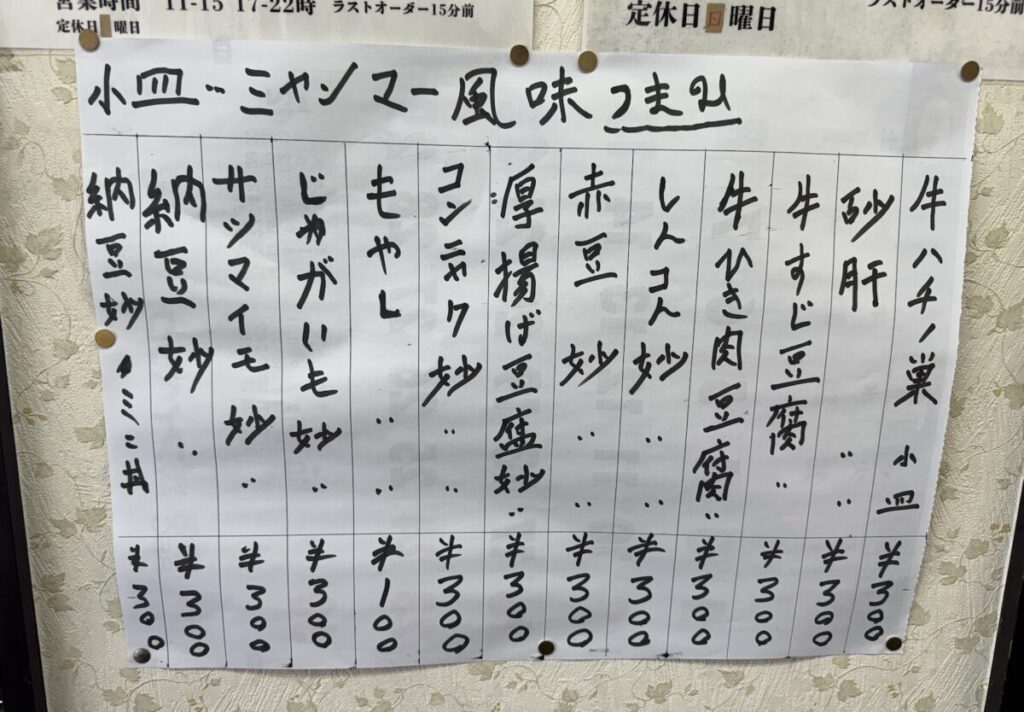 営業時間 11-15 17-22時 ラストオーダー15分前
定休日 日 曜日
ラストオーダー15分前
定休日 日 曜日
小皿‥ミャンマー風味つまみ
牛ハチノ巣 小皿 ¥300
砂肝 〃 〃 ¥300
牛すじ豆腐 〃 ¥300
牛ひき肉豆腐〃 ¥300
しんコん妙 〃 〃 ¥300
赤豆 妙 〃 〃 ¥300
厚揚ば豆腐妙〃 ¥300
コンニャク妙 〃 〃 ¥300
もやし 〃 〃 ¥100
じゃがいも妙 〃 ¥300
サツマイモ妙 〃 ¥300
納豆妙 〃 ¥300
納豆妙ノミニ丼 ¥300